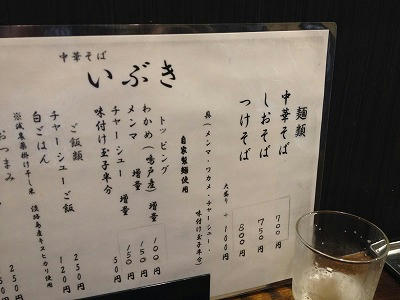 中華そば
いぶき
麺類
中華そば 700円
しおそば 750円
つけそば 800円
大盛り +100円
具(メンマ・ワカメ・チャーシュー、味付け玉子半分)
自家製麺使用
トッピング
わかめ(鳴戸産) 増量 100円
メンマ 増量 150円
チャーシュー 増量 150円
味付け玉子半分 50円
ご飯類
チャーシューご飯 250円
白ごはん 120円
※減農薬掛け干し米 淡路島産キヌヒカリ使用
おつまみ